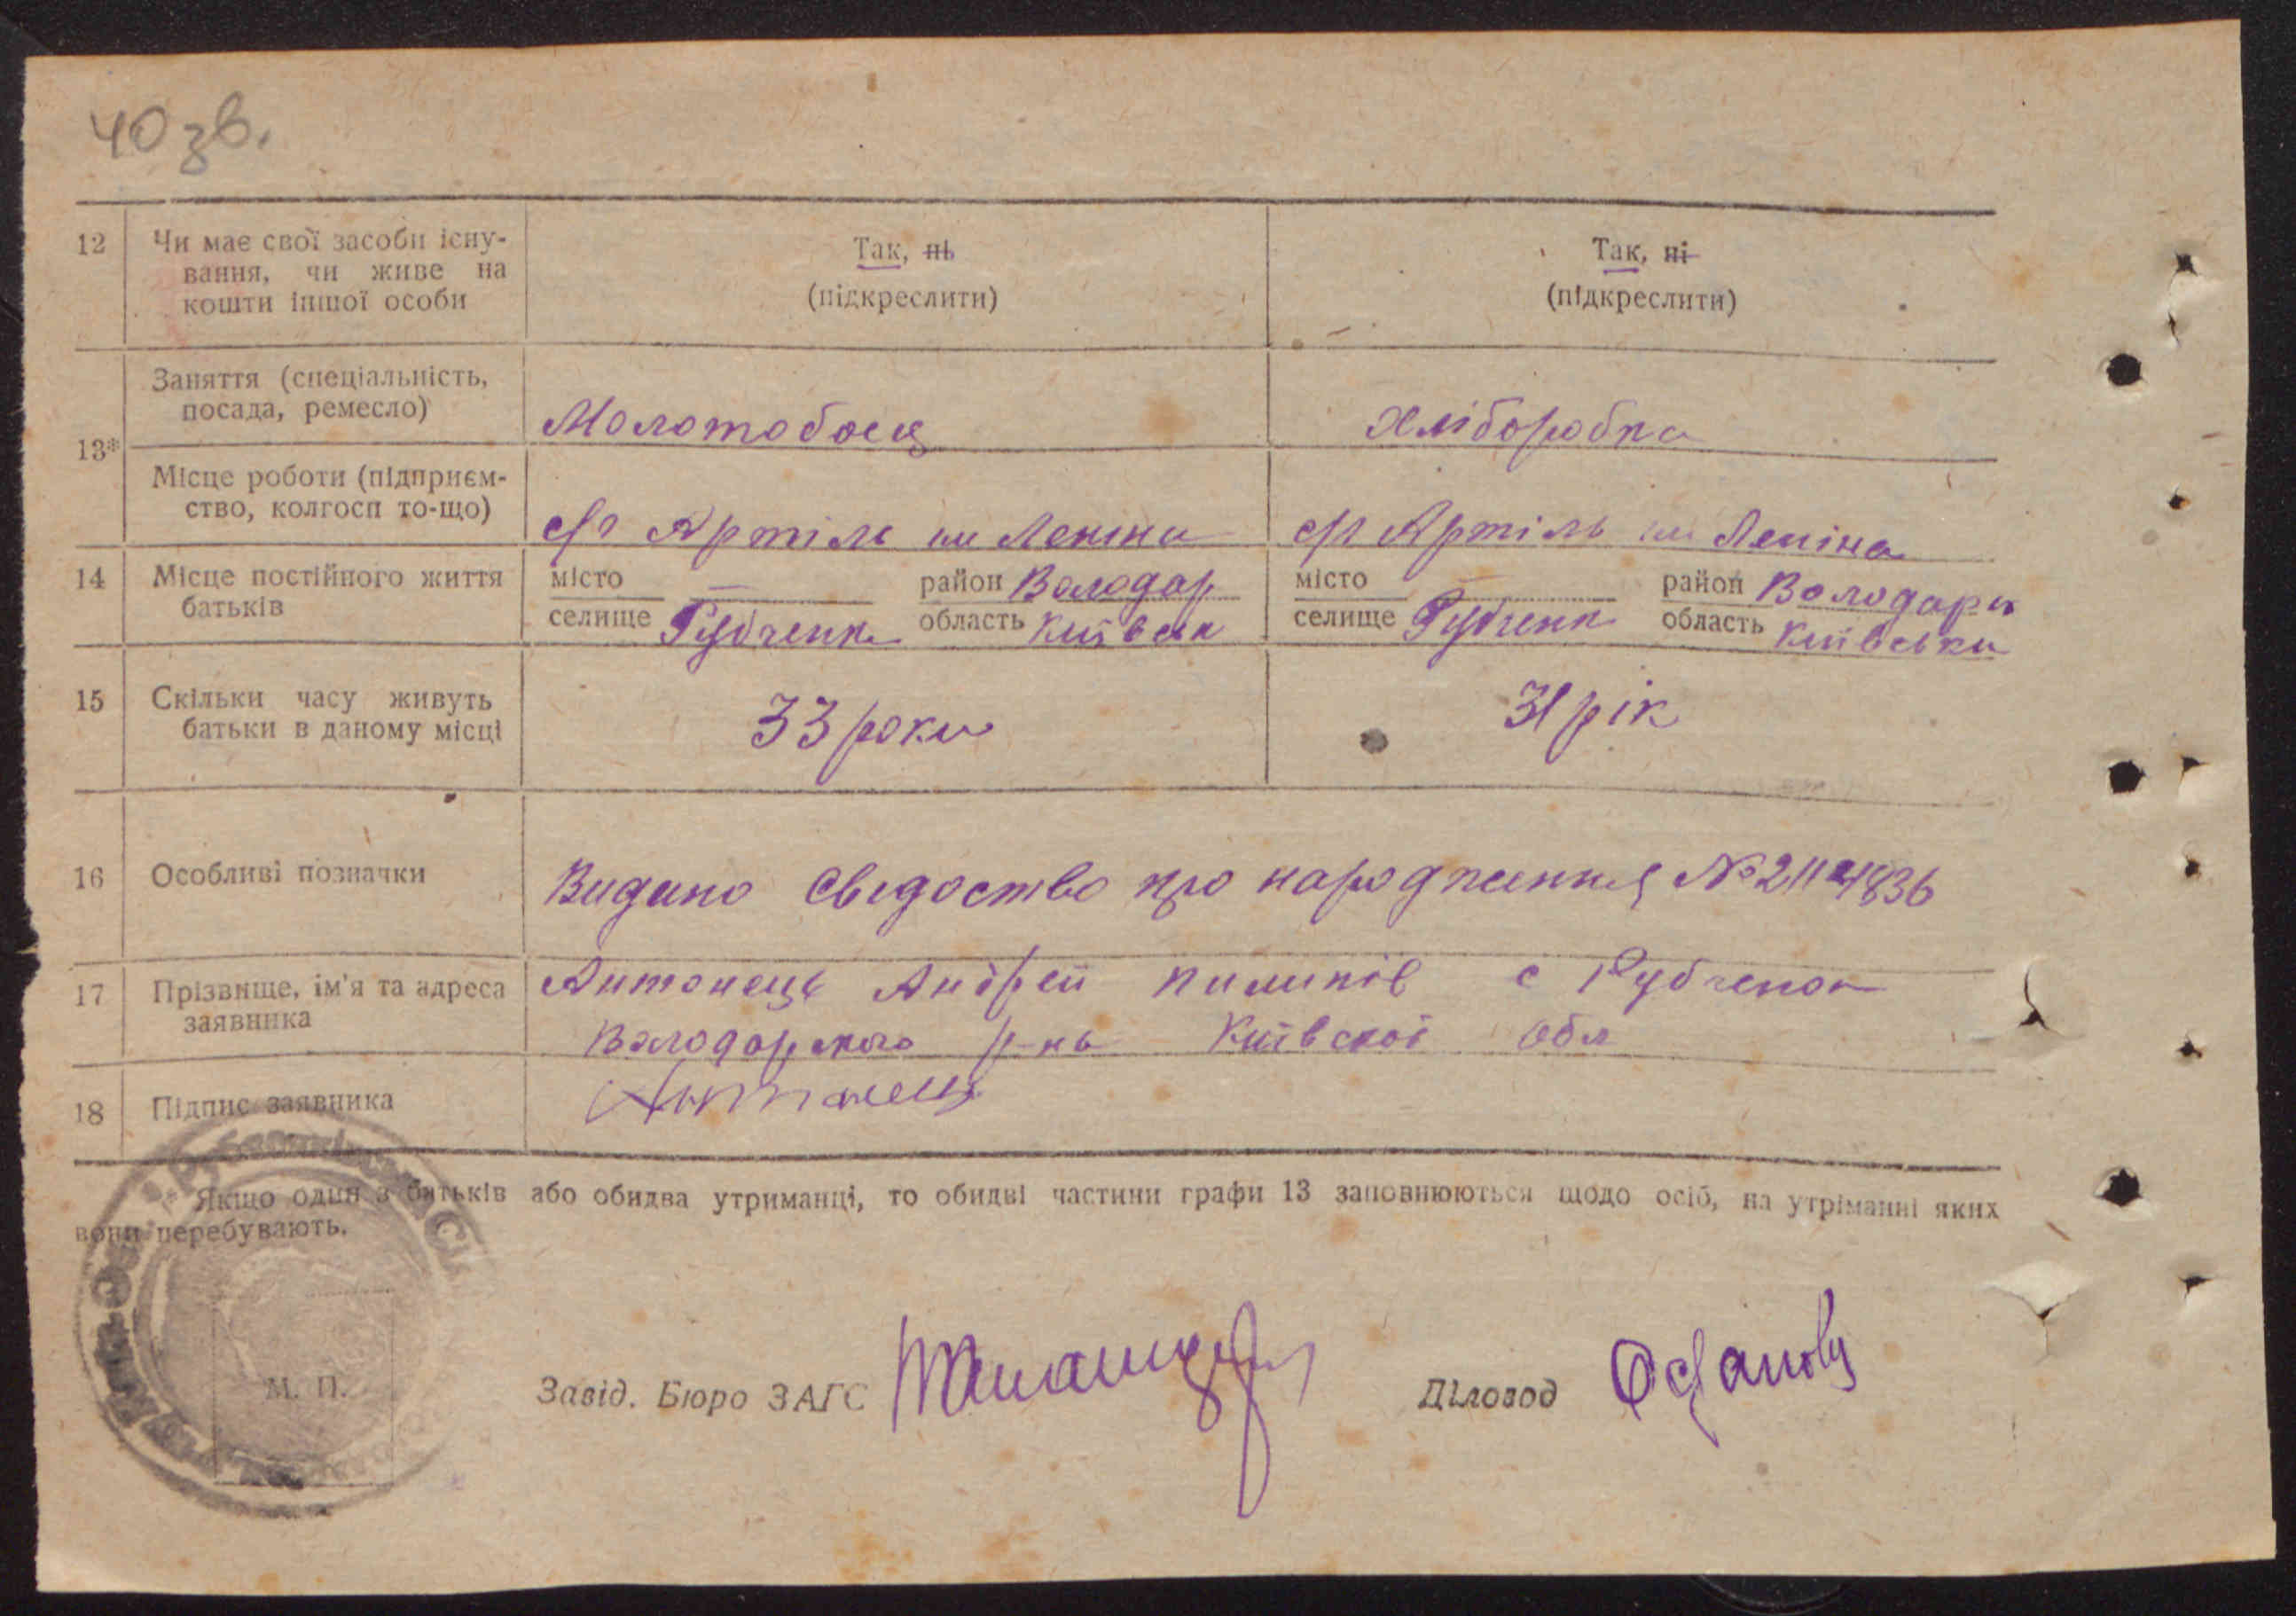 40 зв.
12 Чи має свої засоби існу- Так, ні Так, ні
вання, чи живе на (підкреслити) (підкреслити)
кошти іншої особи
13* Заняття (спеціальність, Молотобоец Хлiборобка
посада, ремесло)
Місце роботи (підприєм- с/г Артіль им Ленина с/г Артіль им Леніна
ство, колгосп то-що)
14 Місце постійного життя місто — район Володар місто — район Володарк
батьків селище Рубченк область Київськ селище Рубченк область Київська
15 Скільки часу живуть 33 роки 31 рік
батьки в даному місці
16 Особливі позначки Видано Свідоство про народження № 2114836
17 Прізвище, ім'я та адреса Антонець Андрей Пилипів с Рубченок
заявника Володарского р-на Київскої обл
18 Підпис заявника Антонець
* Якщо один з батьків або обидва утриманці, то обидві частини графи 13 заповнюються щодо осіб, на утріманні яких
вони перебувають.
М. П.
Завід. Бюро ЗАГС Діловод